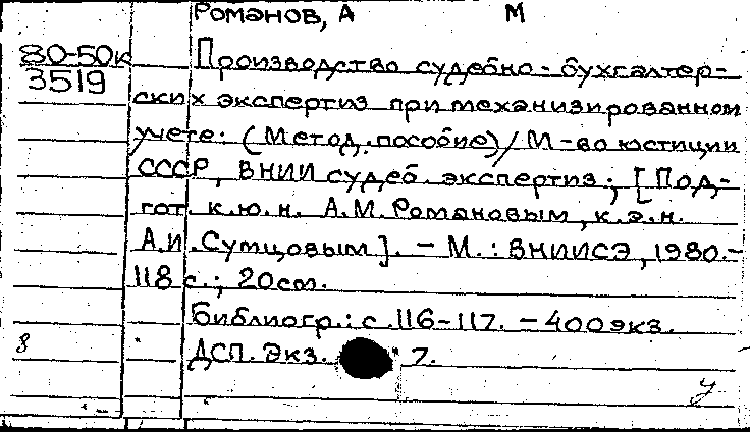 Романов, А М
80-50к Производство судебно-бухгалтер-
3519
ских экспертиз при механизированном
учете. (Метод. пособие) / М-во юстиции
СССР, ВНИИ судеб. экспертиз; [Под-
гот. к.ю.н. А.М. Романовым, к.э.н.
А.И. Сумцовым]. - М.: ВНИИСЭ, 1980.-
118 с.; 20 см.
Библиогр.: с. 116-117. - 400 экз.
8 ДСП. Экз. 7.
У